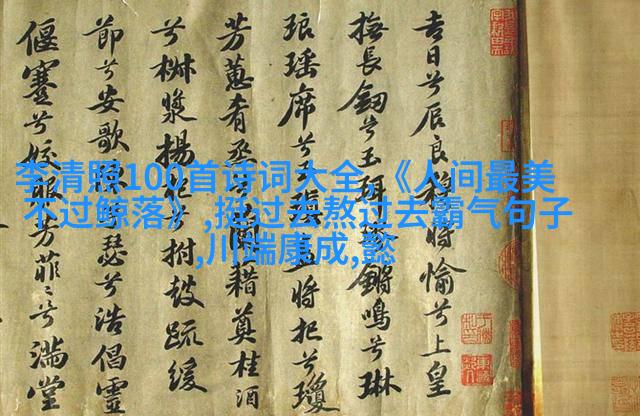 李清照100首诗词大全,《人间最美
不过鲸落》,挺过去熬过去霸气句子
,川端康成,懿
吉日兮辰良穆將愉兮上皇
撫長劒兮玉珥璆鏘鳴兮琳
琅瑤席兮玉瑱盍將把兮瓊
芳蕙肴烝兮蘭藉奠桂酒
兮椒漿揚枹兮拊鼓疏緩
節兮安歌瑟兮浩倡靈
偃蹇兮姣服芳菲〻兮滿堂